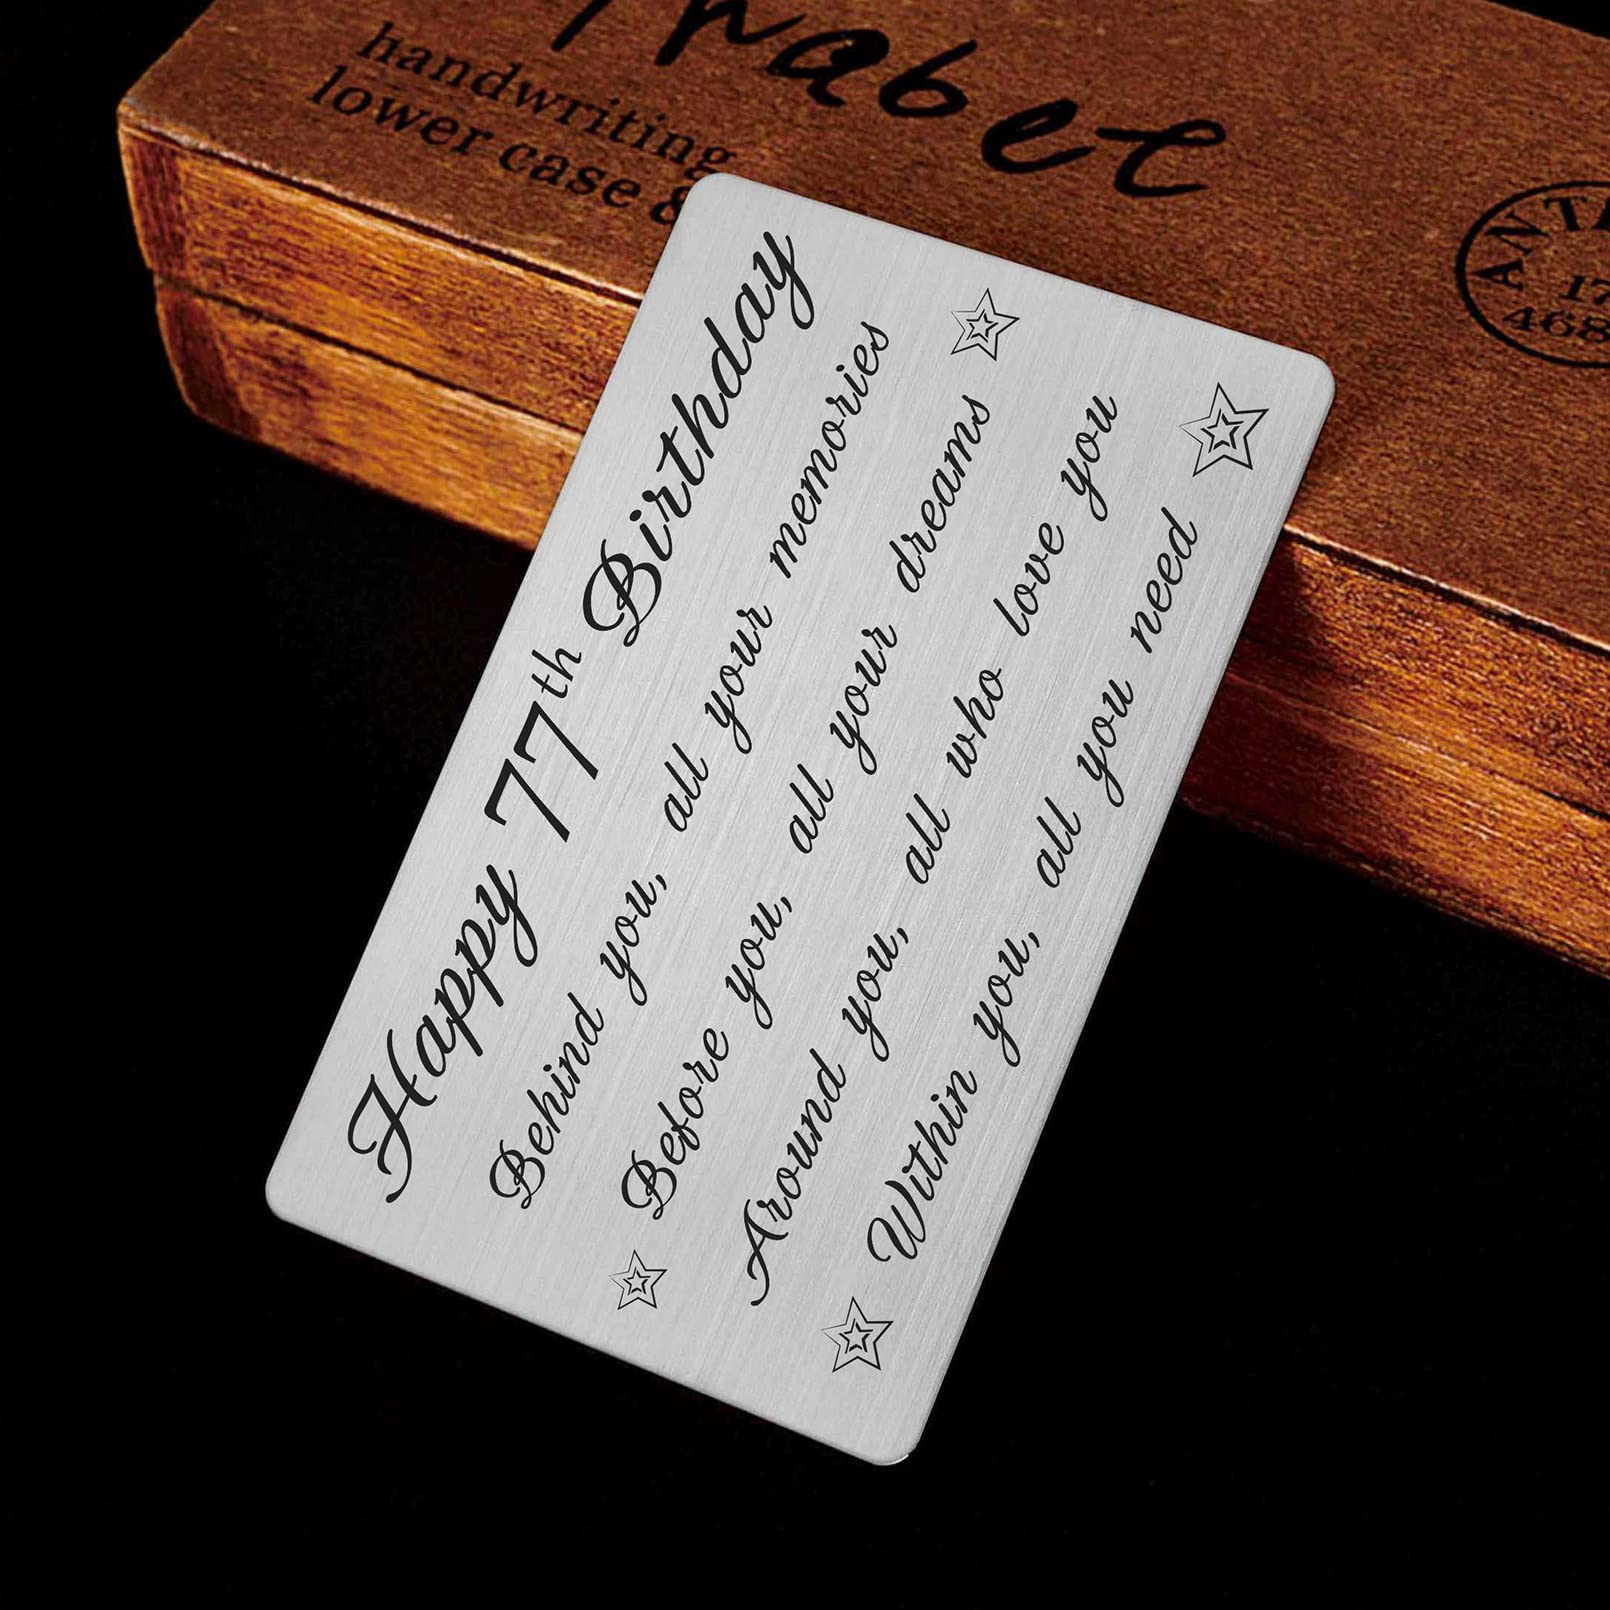 handwriting
lower case &
Happy 77th Birthday
Behind you, all your memories
Before you, all your dreams
Around you, all who love you
Within you, all you need